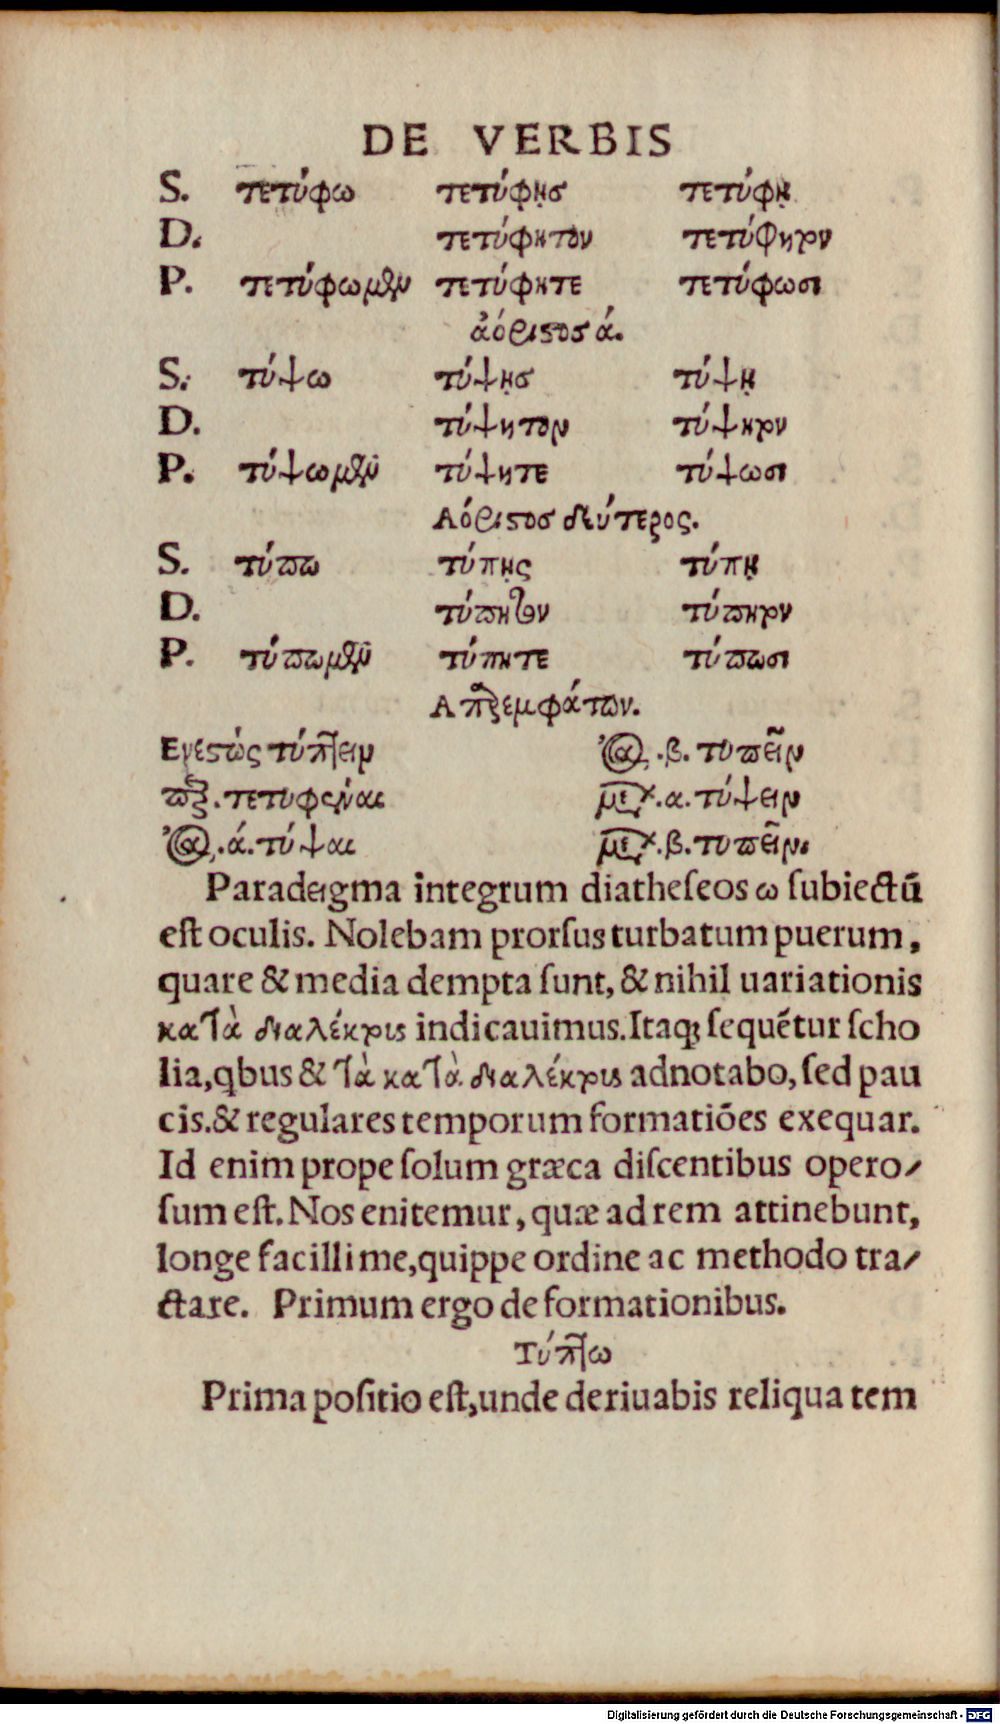 DE VERBIS
S. τετύφω τετύφῃσ τετύφῃ
D. τετύφητον τετύφητον
P. τετύφωμεν τετύφητε τετύφωσι
ἀόριστοσ ά.
S. τύψω τύψῃσ τύψῃ
D. τύψητον τύψητον
P. τύψωμεν τύψητε τύψωσι
Αόριστοσ δεύτερος.
S. τύπω τύπῃς τύπῃ
D. τύπητον τύπητον
P. τύπωμεν τύπητε τύπωσι
Απαρεμφάτων.
Ενεστὼς τύπτειν .β. τυπεῖν
τετυφέναι .α. τύψειν
.ά. τύψαι .β. τυπεῖν.
Paradeigma integrum diatheseos ω subiectū
est oculis. Nolebam prorsus turbatum puerum,
quare & media dempta sunt, & nihil uariationis
κατὰ διαλέκτους indicauimus. Itaq; sequētur scho
lia, qbus & τὰ κατὰ διαλέκτους adnotabo, sed pau
cis. & regulares temporum formatiōes exequar.
Id enim prope solum græca discentibus opero/
sum est. Nos enitemur, quæ ad rem attinebunt,
longe facillime, quippe ordine ac methodo tra/
ctare. Primum ergo de formationibus.
Τύπτω
Prima positio est, unde deriuabis reliqua tem
Digitalisierung gefördert durch die Deutsche Forschungsgemeinschaft - DFG